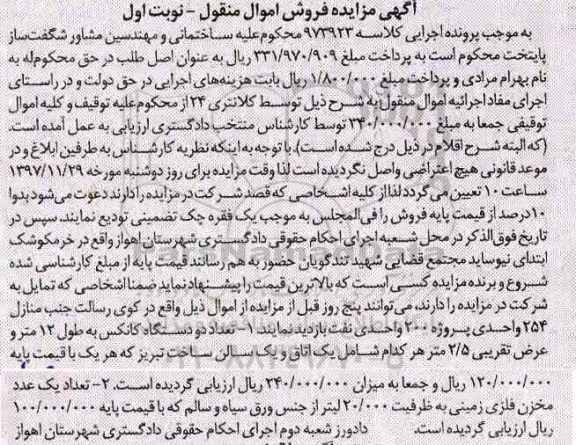 آگهی مزایده فروش اموال منقول - نوبت اول
به موجب پرونده اجرایی کلاسه ۹۷۳۹۲۳ محکوم‌علیه ساختمانی و مهندسین مشاور شگفت‌ساز
پایتخت محکوم است به پرداخت مبلغ ۳۳۱/۹۷۰/۹۰۹ ریال به عنوان اصل طلب در حق محکوم‌له به
نام بهرام مرادی و پرداخت مبلغ ۱/۸۰۰/۰۰۰ ریال بابت هزینه‌های اجرایی در حق دولت و در راستای
اجرای مفاد اجرائیه اموال منقول به شرح ذیل توسط کلانتری ۲۴ از محکوم‌علیه توقیف و کلیه اموال
توقیفی جمعا به مبلغ ۳۴۰/۰۰۰/۰۰۰ توسط کارشناس منتخب دادگستری ارزیابی به عمل آمده است.
(که البته شرح اقلام در ذیل درج شده است). با توجه به اینکه نظریه کارشناس به طرفین ابلاغ و در
موعد قانونی هیچ اعتراضی واصل نگردیده است لذا وقت مزایده برای روز دوشنبه مورخه ۱۳۹۷/۱۱/۲۹
ساعت ۱۰ تعیین می گردد لذا از کلیه اشخاصی که قصد شرکت در مزایده را دارند دعوت می‌شود بدوا
۱۰درصد از قیمت پایه فروش را فی‌المجلس به موجب یک فقره چک تضمینی تودیع نمایند. سپس در
تاریخ فوق‌الذکر در محل شعبه اجرای احکام حقوقی دادگستری شهرستان اهواز واقع در خرمکوشک
ابتدای نیوساید مجتمع قضایی شهید تندگویان حضور به هم رسانند قیمت پایه از مبلغ کارشناسی شده
شروع و برنده مزایده کسی است که بالاترین قیمت را پیشنهاد نماید ضمنا اشخاصی که تمایل به
شرکت در مزایده را دارند، می‌توانند پنج روز قبل از مزایده از اموال ذیل واقع در کوی رسالت جنب منازل
۲۵۴ واحدی پروژه ۲۰۰ واحدی نفت بازدید نمایند ۱- تعداد دو دستگاه کانکس به طول ۱۲ متر و
عرض تقریبی ۲/۵ متر هر کدام شامل یک اتاق و یک سالن ساخت تبریز که هر یک با قیمت پایه
۱۲۰/۰۰۰/۰۰۰ ریال و جمعا به میزان ۲۴۰/۰۰۰/۰۰۰ ریال ارزیابی گردیده است. ۲- تعداد یک عدد
مخزن فلزی زمینی به ظرفیت ۲۰/۰۰۰ لیتر از جنس ورق سیاه و سالم که با قیمت پایه ۱۰۰/۰۰۰/۰۰۰
ریال ارزیابی گردیده است. دادورز شعبه دوم اجرای احکام حقوقی دادگستری شهرستان اهواز